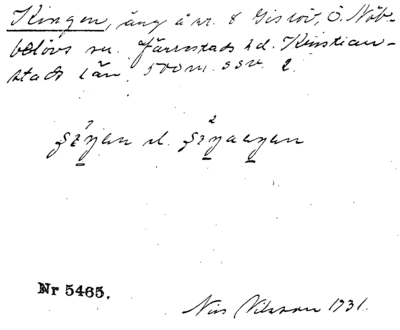 Kingen, äng å nr. 8 Gislöv, Ö. Nöb-
belövs sn. Järrestads hd. Kristian-
stads län. 500 m. SSV. 2.
el.
Nr 5465.
Nils Nilsson 1931.